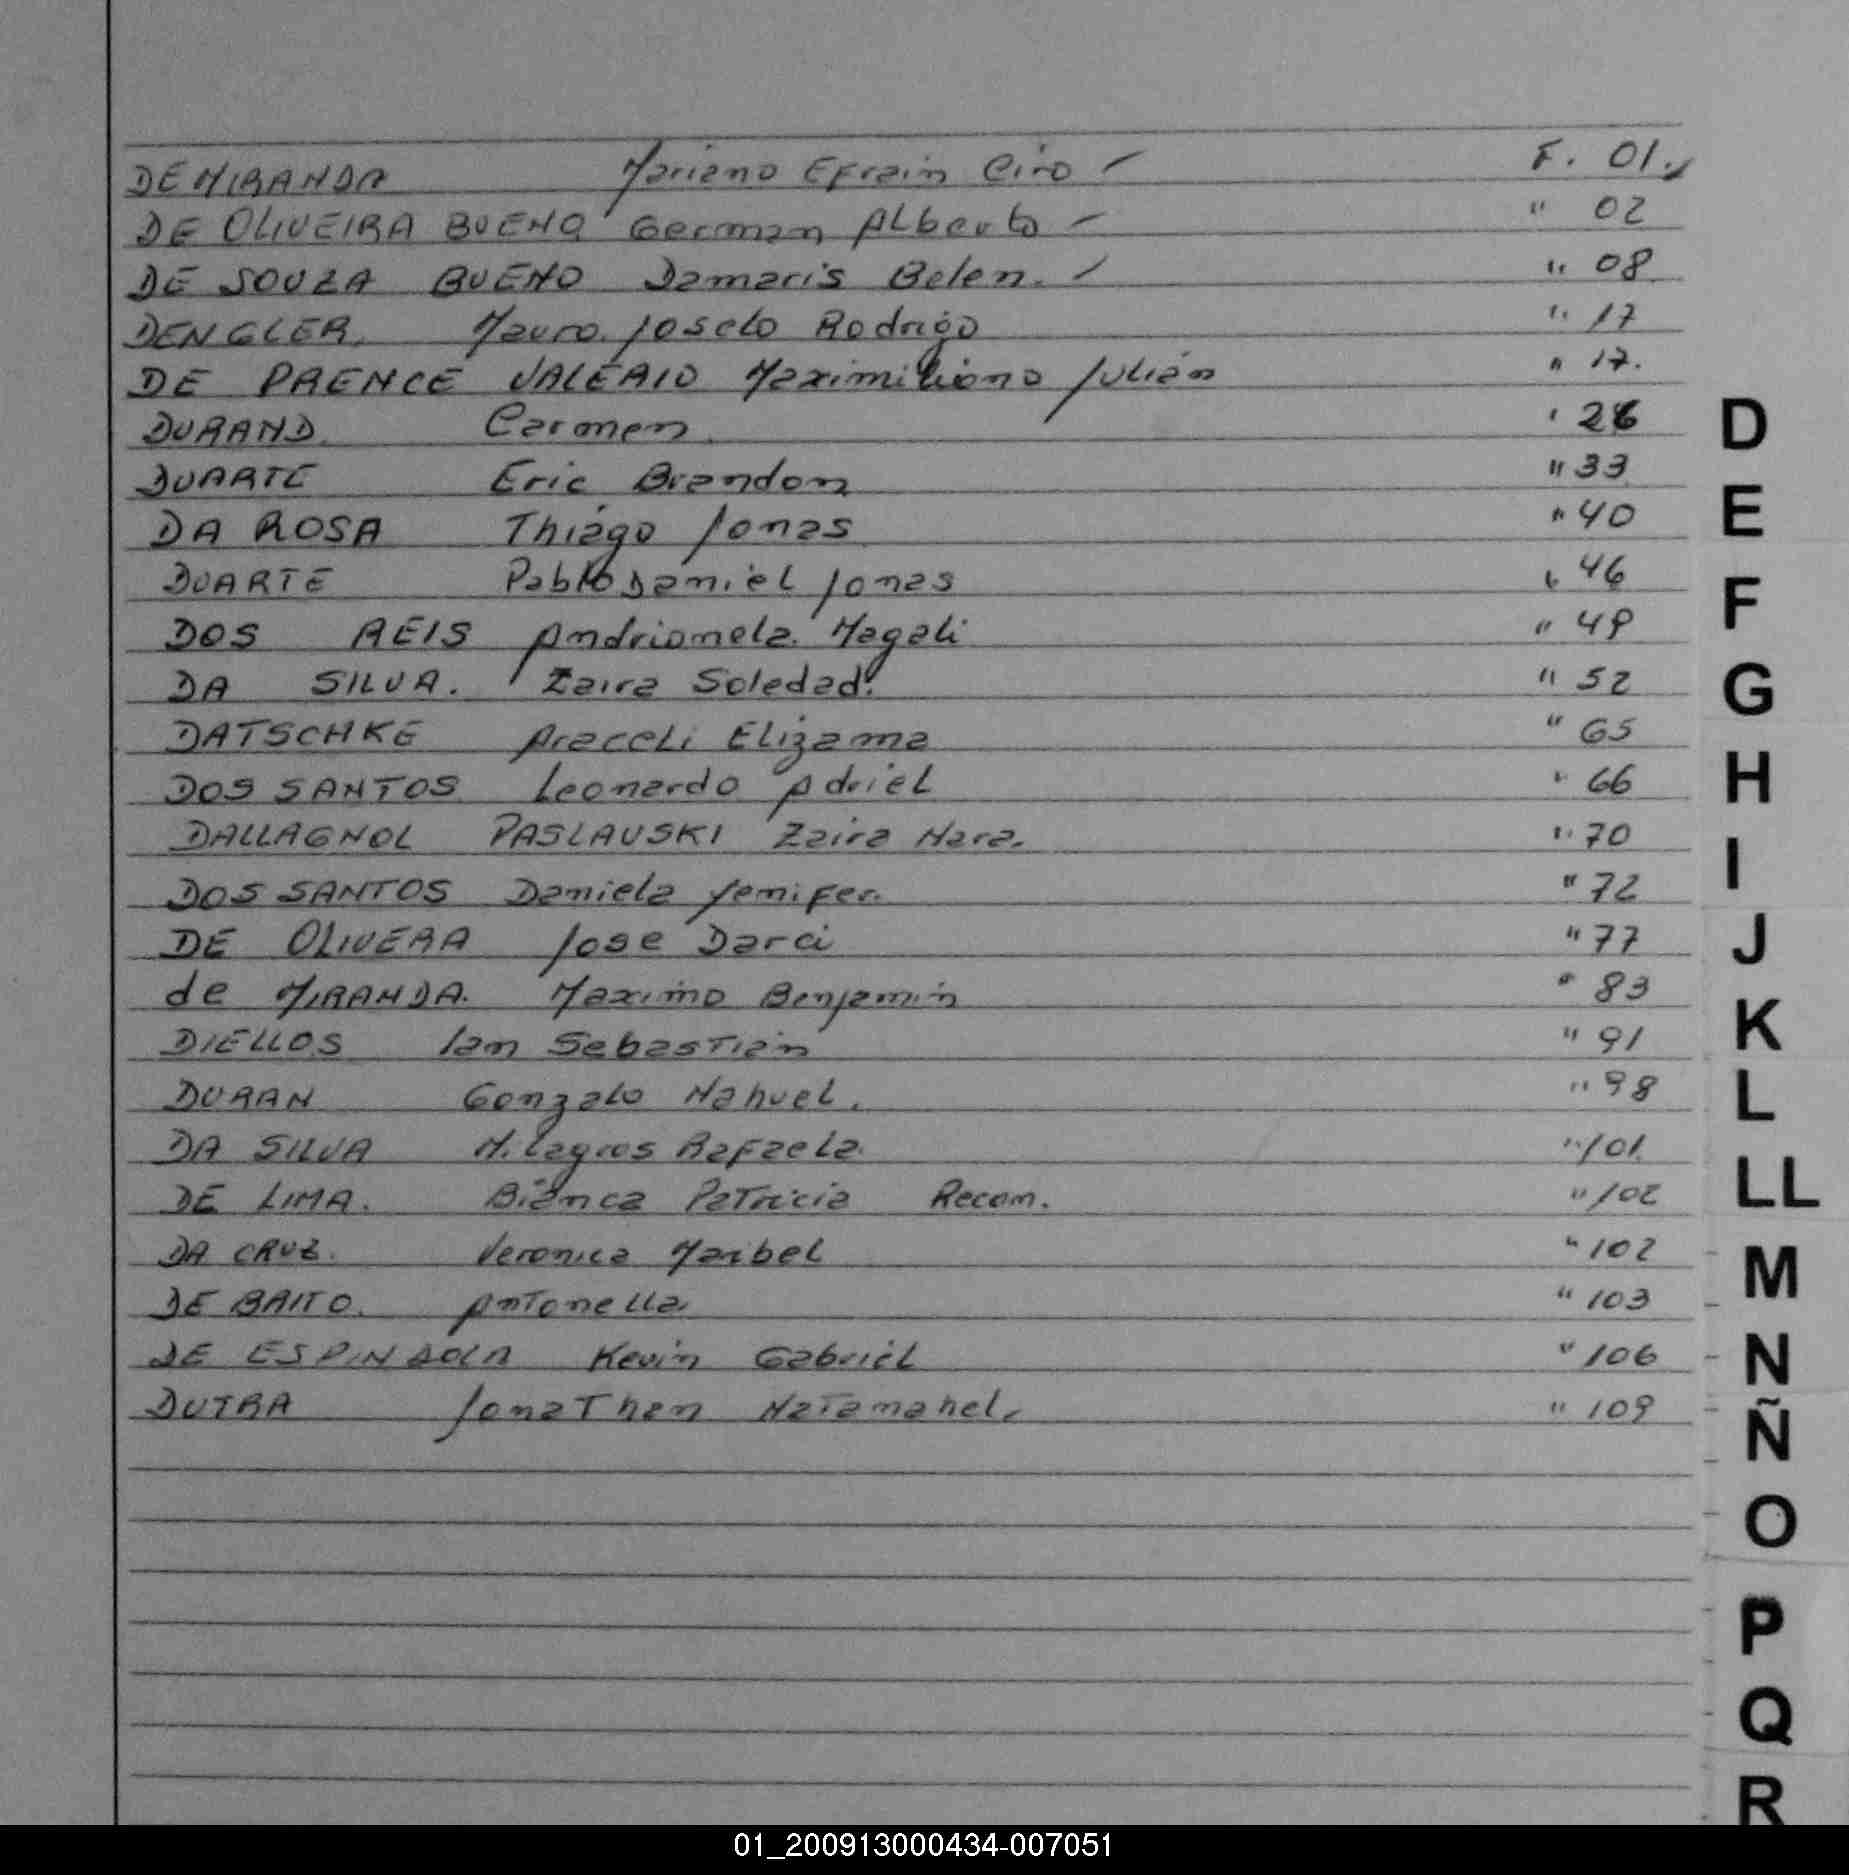 DE MIRANDA Mariano Efrain Ciro F. 01.
DE OLIVEIRA BUENO German Alberto " 02
DE SOUZA BUENO Damaris Belen. " 08
DENGLER. Mauro Joselo Rodrigo " 17
DE PRENCE VALERIO Maximiliano Julián " 17.
DURAND Carmen " 26
DUARTE Eric Brandon " 33
DA ROSA Thiago Jonas " 40
DUARTE Pablo Daniel Jonas " 46
DOS REIS Andrionela Magali " 49
DA SILVA. Zaira Soledad. " 52
DATSCHKE Araceli Elizama " 65
DOS SANTOS Leonardo Adriel " 66
DALLAGNOL PASLAUSKI Zaira Nara. " 70
DOS SANTOS Daniela Yenifer. " 72
DE OLIVERA Jose Darci " 77
de MIRANDA. Maximo Benjamin " 83
DIELLOS Ian Sebastián " 91
DURAN Gonzalo Nahuel. " 98
DA SILVA Milagros Rafaela " 101
DE LIMA. Bianca Patricia Recom. " 102
DA CRUZ. Veronica Maribel " 102
DE BRITO. Antonella " 103
DE ESPINDOLA Kevin Gabriel " 106
DUTRA Jonathan Natanahel. " 109
D
E
F
G
H
I
J
K
L
LL
M
N
Ñ
O
P
Q
R
01_200913000434-007051